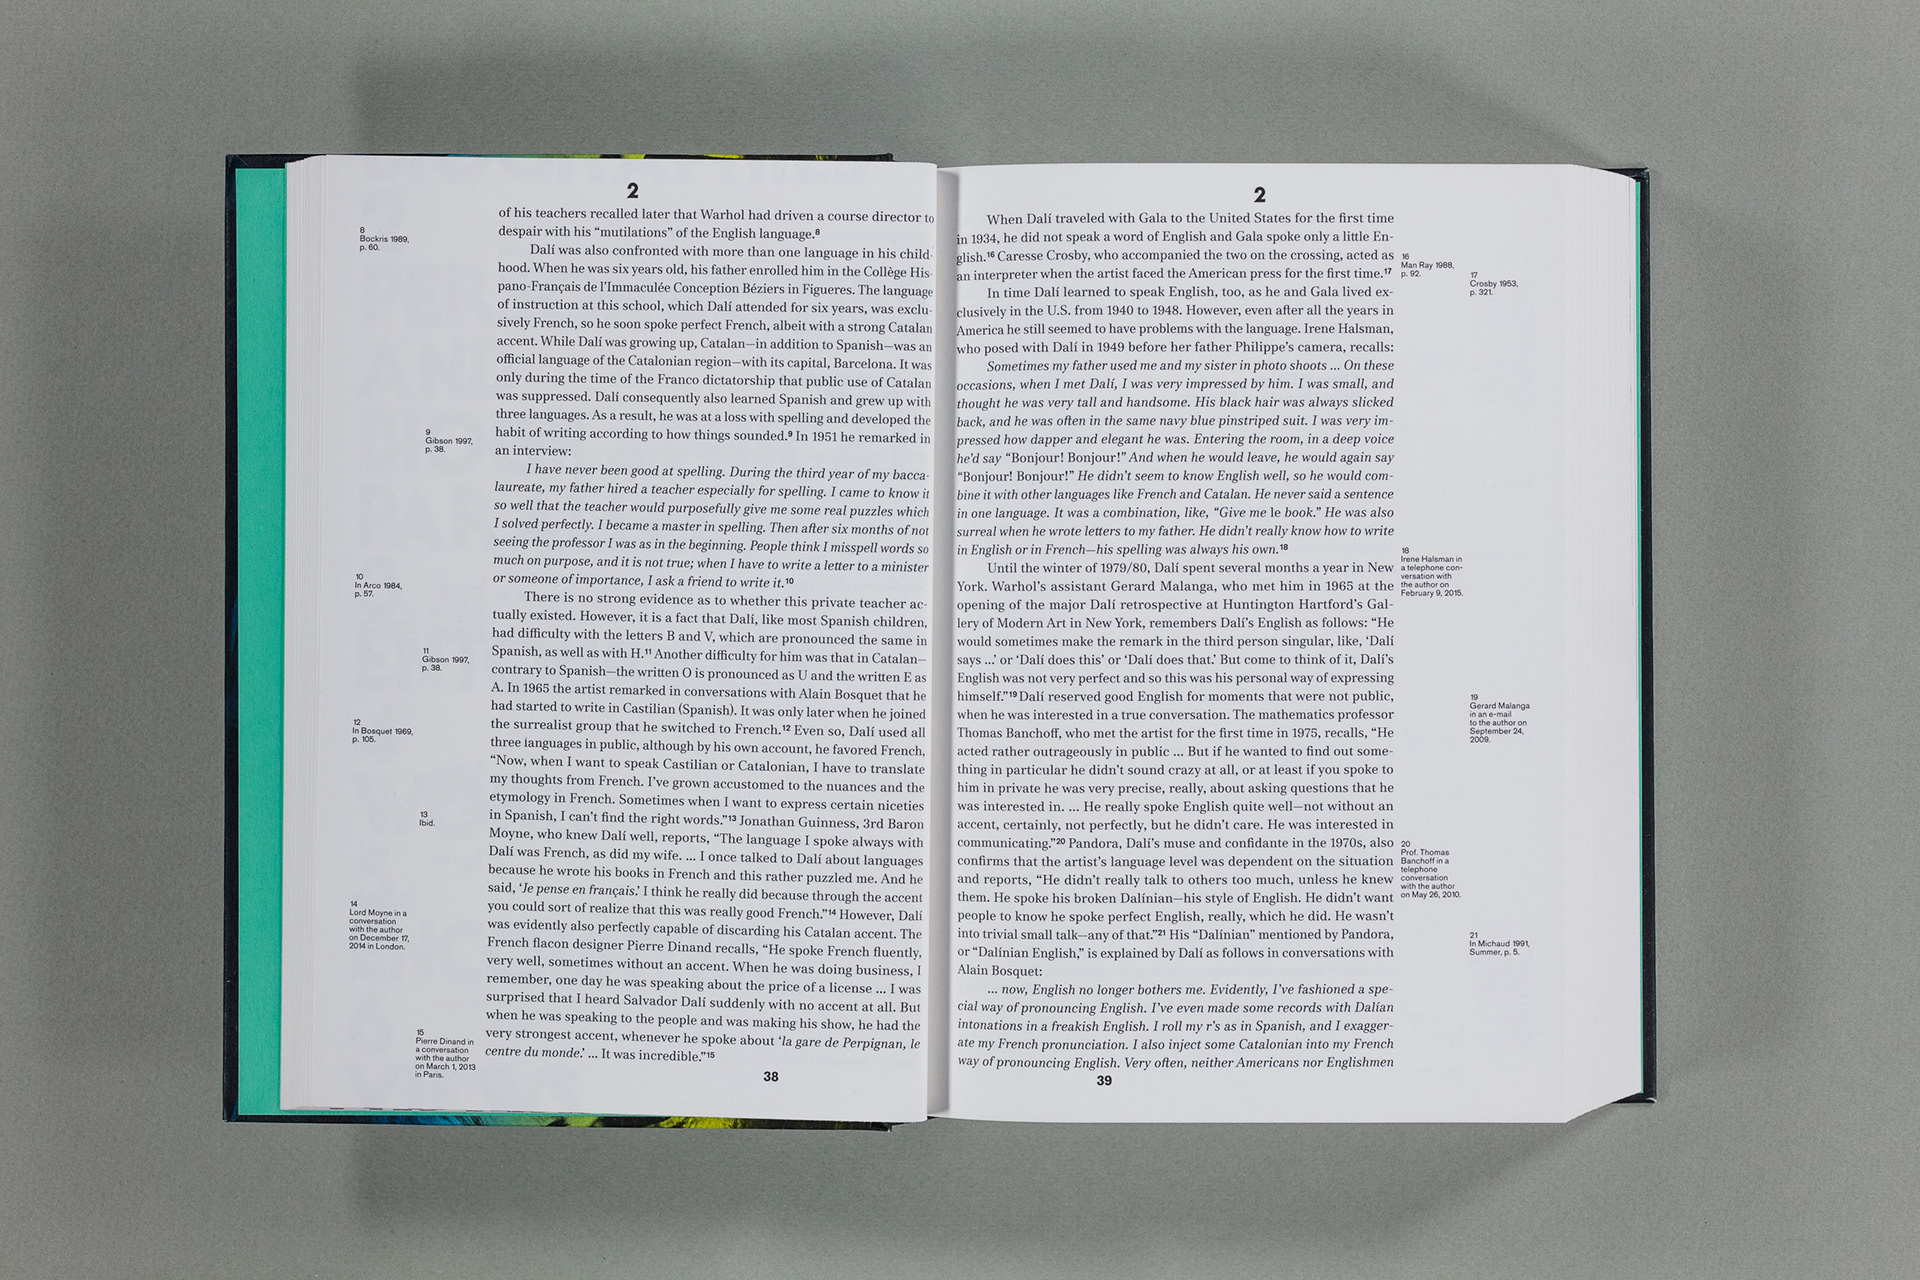 2
of his teachers recalled later that Warhol had driven a course director to
despair with his “mutilations” of the English language.8
Dalí was also confronted with more than one language in his child-
hood. When he was six years old, his father enrolled him in the Collège His-
pano-Français de l’Immaculée Conception Béziers in Figueres. The language
of instruction at this school, which Dalí attended for six years, was exclu-
sively French, so he soon spoke perfect French, albeit with a strong Catalan
accent. While Dalí was growing up, Catalan—in addition to Spanish—was an
official language of the Catalonian region—with its capital, Barcelona. It was
only during the time of the Franco dictatorship that public use of Catalan
was suppressed. Dalí consequently also learned Spanish and grew up with
three languages. As a result, he was at a loss with spelling and developed the
habit of writing according to how things sounded.9 In 1951 he remarked in
an interview:
I have never been good at spelling. During the third year of my bacca-
laureate, my father hired a teacher especially for spelling. I came to know it
so well that the teacher would purposefully give me some real puzzles which
I solved perfectly. I became a master in spelling. Then after six months of not
seeing the professor I was as in the beginning. People think I misspell words so
much on purpose, and it is not true; when I have to write a letter to a minister
or someone of importance, I ask a friend to write it.10
There is no strong evidence as to whether this private teacher ac-
tually existed. However, it is a fact that Dalí, like most Spanish children,
had difficulty with the letters B and V, which are pronounced the same in
Spanish, as well as with H.11 Another difficulty for him was that in Catalan—
contrary to Spanish—the written O is pronounced as U and the written E as
A. In 1965 the artist remarked in conversations with Alain Bosquet that he
had started to write in Castilian (Spanish). It was only later when he joined
the surrealist group that he switched to French.12 Even so, Dalí used all
three languages in public, although by his own account, he favored French,
“Now, when I want to speak Castilian or Catalonian, I have to translate
my thoughts from French. I’ve grown accustomed to the nuances and the
etymology in French. Sometimes when I want to express certain niceties
in Spanish, I can’t find the right words.”13 Jonathan Guinness, 3rd Baron
Moyne, who knew Dalí well, reports, “The language I spoke always with
Dalí was French, as did my wife. ... I once talked to Dalí about languages
because he wrote his books in French and this rather puzzled me. And he
said, ‘Je pense en français.’ I think he really did because through the accent
you could sort of realize that this was really good French.”14 However, Dalí
was evidently also perfectly capable of discarding his Catalan accent. The
French flacon designer Pierre Dinand recalls, “He spoke French fluently,
very well, sometimes without an accent. When he was doing business, I
remember, one day he was speaking about the price of a license ... I was
surprised that I heard Salvador Dalí suddenly with no accent at all. But
when he was speaking to the people and was making his show, he had the
very strongest accent, whenever he spoke about ‘la gare de Perpignan, le
centre du monde.’ ... It was incredible.”15
8
Bockris 1989,
p. 60.
9
Gibson 1997,
p. 38.
10
In Arco 1984,
p. 57.
11
Gibson 1997,
p. 38.
12
In Bosquet 1969,
p. 105.
13
Ibid.
14
Lord Moyne in a
conversation
with the author
on December 17,
2014 in London.
15
Pierre Dinand in
a conversation
with the author
on March 1, 2013
in Paris.
38
2
When Dalí traveled with Gala to the United States for the first time
in 1934, he did not speak a word of English and Gala spoke only a little En-
glish.16 Caresse Crosby, who accompanied the two on the crossing, acted as
an interpreter when the artist faced the American press for the first time.17
In time Dalí learned to speak English, too, as he and Gala lived ex-
clusively in the U.S. from 1940 to 1948. However, even after all the years in
America he still seemed to have problems with the language. Irene Halsman,
who posed with Dalí in 1949 before her father Philippe’s camera, recalls:
Sometimes my father used me and my sister in photo shoots ... On these
occasions, when I met Dalí, I was very impressed by him. I was small, and
thought he was very tall and handsome. His black hair was always slicked
back, and he was often in the same navy blue pinstriped suit. I was very im-
pressed how dapper and elegant he was. Entering the room, in a deep voice
he’d say “Bonjour! Bonjour!” And when he would leave, he would again say
“Bonjour! Bonjour!” He didn’t seem to know English well, so he would com-
bine it with other languages like French and Catalan. He never said a sentence
in one language. It was a combination, like, “Give me le book.” He was also
surreal when he wrote letters to my father. He didn’t really know how to write
in English or in French—his spelling was always his own.18
Until the winter of 1979/80, Dalí spent several months a year in New
York. Warhol’s assistant Gerard Malanga, who met him in 1965 at the
opening of the major Dalí retrospective at Huntington Hartford’s Gal-
lery of Modern Art in New York, remembers Dalí’s English as follows: “He
would sometimes make the remark in the third person singular, like, ‘Dalí
says ...’ or ‘Dalí does this’ or ‘Dalí does that.’ But come to think of it, Dalí’s
English was not very perfect and so this was his personal way of expressing
himself.”19 Dalí reserved good English for moments that were not public,
when he was interested in a true conversation. The mathematics professor
Thomas Banchoff, who met the artist for the first time in 1975, recalls, “He
acted rather outrageously in public ... But if he wanted to find out some-
thing in particular he didn’t sound crazy at all, or at least if you spoke to
him in private he was very precise, really, about asking questions that he
was interested in. ... He really spoke English quite well—not without an
accent, certainly, not perfectly, but he didn’t care. He was interested in
communicating.”20 Pandora, Dalí’s muse and confidante in the 1970s, also
confirms that the artist’s language level was dependent on the situation
and reports, “He didn’t really talk to others too much, unless he knew
them. He spoke his broken Dalínian—his style of English. He didn’t want
people to know he spoke perfect English, really, which he did. He wasn’t
into trivial small talk—any of that.”21 His “Dalínian” mentioned by Pandora,
or “Dalínian English,” is explained by Dalí as follows in conversations with
Alain Bosquet:
... now, English no longer bothers me. Evidently, I’ve fashioned a spe-
cial way of pronouncing English. I’ve even made some records with Dalían
intonations in a freakish English. I roll my r’s as in Spanish, and I exagger-
ate my French pronunciation. I also inject some Catalonian into my French
way of pronouncing English. Very often, neither Americans nor Englishmen
16
Man Ray 1988,
p. 92.
17
Crosby 1953,
p. 321.
18
Irene Halsman in
a telephone con-
versation with
the author on
February 9, 2015.
19
Gerard Malanga
in an e-mail
to the author on
September 24,
2009.
20
Prof. Thomas
Banchoff in a
telephone
conversation
with the author
on May 26, 2010.
21
In Michaud 1991,
Summer, p. 5.
39